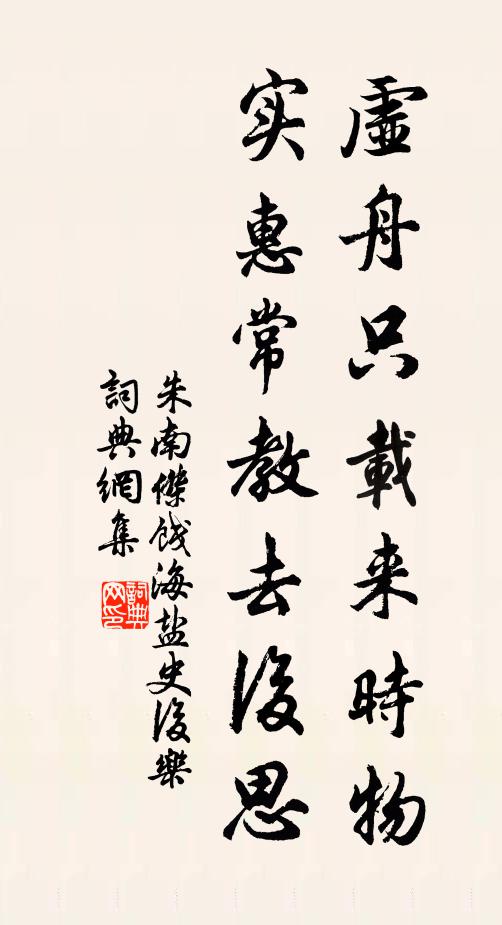 虛舟只載来時物
实惠常教去後思
朱南傑餞海盐史後樂
詞典網集
詞典網印